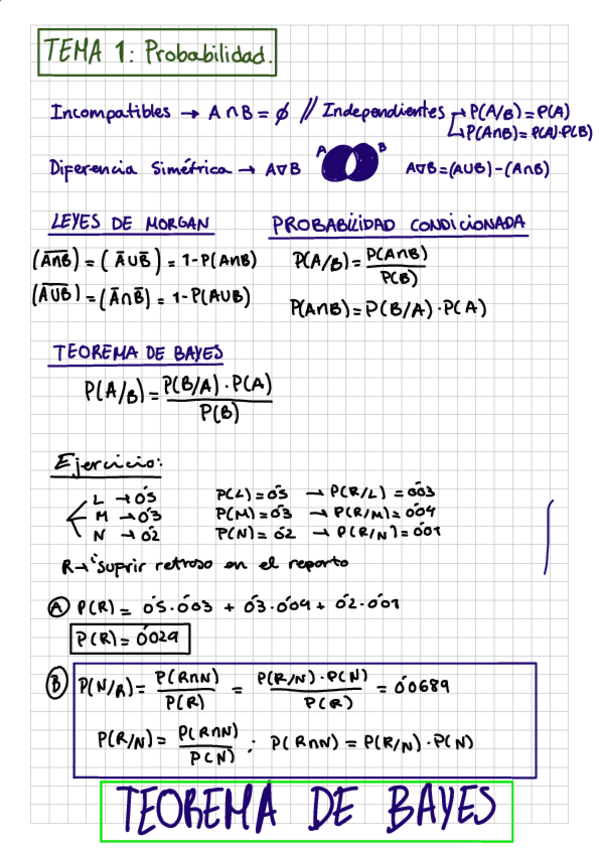 TEMA 1: Probabilidad.
Incompatibles → A∩B = ∅ // Independientes → P(A/B) = P(A)
↳ P(A∩B) = P(A)·P(B)
Diferencia Simétrica → A∇B A B A∇B = (A∪B) - (A∩B)
LEYES DE MORGAN
(A̅∩̅B̅) = (A̅ ∪ B̅) = 1 - P(A∩B)
(A̅∪̅B̅) = (A̅ ∩ B̅) = 1 - P(A∪B)
PROBABILIDAD CONDICIONADA
P(A/B) = P(A∩B) / P(B)
P(A∩B) = P(B/A) · P(A)
TEOREMA DE BAYES
P(A/B) = P(B/A) · P(A) / P(B)
Ejercicio:
L → 0'5 P(L) = 0'5 → P(R/L) = 0'03
M → 0'3 P(M) = 0'3 → P(R/M) = 0'04
N → 0'2 P(N) = 0'2 → P(R/N) = 0'01
R → "Sufrir retroso en el reporto
A P(R) = 0'5·0'03 + 0'3·0'04 + 0'2·0'01
P(R) = 0'029
B P(N/R) = P(R∩N) / P(R) = P(R/N) · P(N) / P(R) = 0'0689
P(R/N) = P(R∩N) / P(N) ; P(R∩N) = P(R/N) · P(N)
TEOREMA DE BAYES